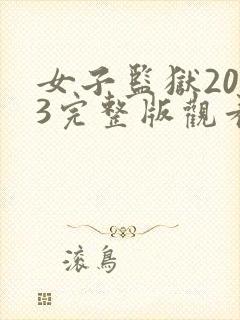 女子監獄20
3完整版觀看
滾鳥